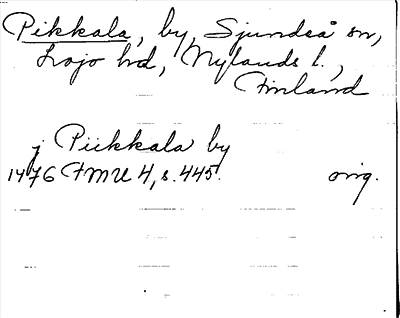 Pikkala, by, Sjundeå sn,
Lojo hd, Nylands l.,
Finland
j Piikkala by
1476 FMU 4, s. 445. orig.